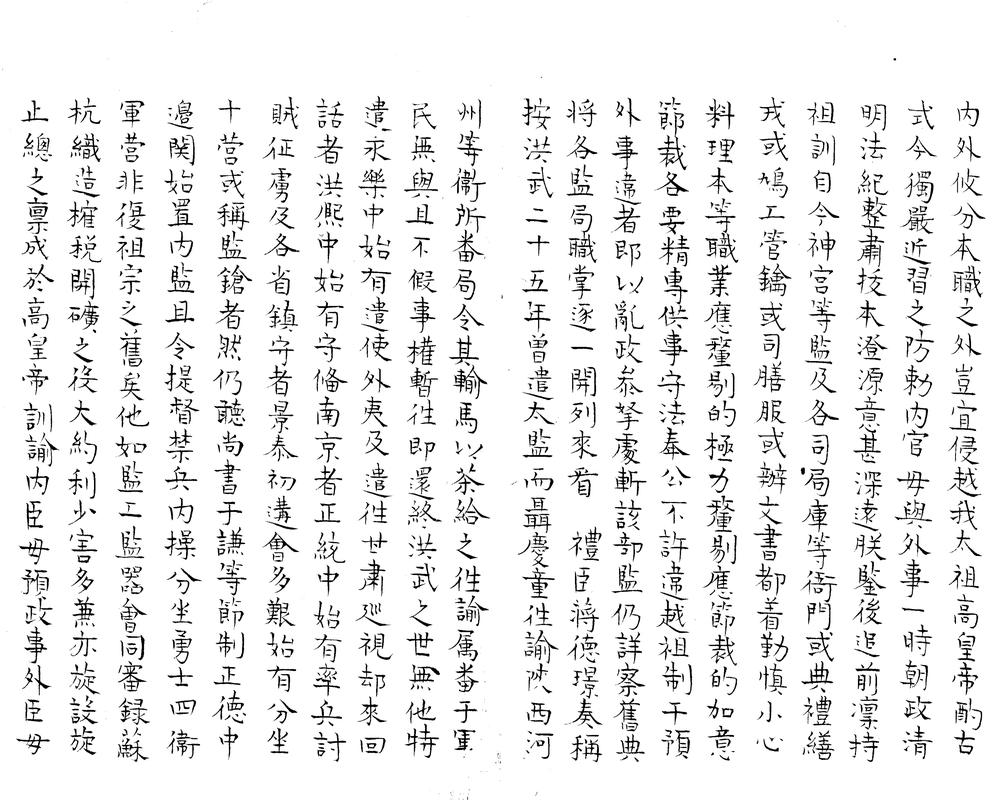 內外攸分本職之外豈宜侵越我太祖高皇帝酌古
式今獨嚴近習之防勅內官毋與外事一時朝政清
明法紀整肅技本澄源意甚深遠朕鑒後追前凜持
祖訓自今神宮等監及各司局庫等衙門或典禮繕
戎或鳩工管鑰或司膳服或辦文書都着勤慎小心
料理本等職業應釐剔的極力釐剔應節裁的加意
節裁各要精專供事守法奉公不許違越祖制干預
外事違者即以亂政叅拏處斬該部監仍詳察舊典
將各監局職掌逐一開列來看 禮臣蔣德璟奏稱
按洪武二十五年曾遣太監而聶慶童徃諭陝西河
州等衞所番局令其輸馬以茶給之徃諭属番于軍
民無與且不假事權暫徃即還終洪武之世無他特
遣永樂中始有遣使外夷及遣徃甘肅廵視却來回
話者洪熈中始有守偹南京者正統中始有率兵討
賊征虜及各省鎮守者景泰初遘會多艱始有分坐
十營或稱監鎗者然仍聽尚書于謙等節制正德中
邉関始置內監且令提督禁兵內操分坐勇士四衞
軍营非復祖宗之舊矣他如監工監噐會同審録蘇
杭織造榷税開礦之役大約利少害多兼亦旋設旋
止總之禀成於高皇帝訓諭內臣毋預政事外臣毋